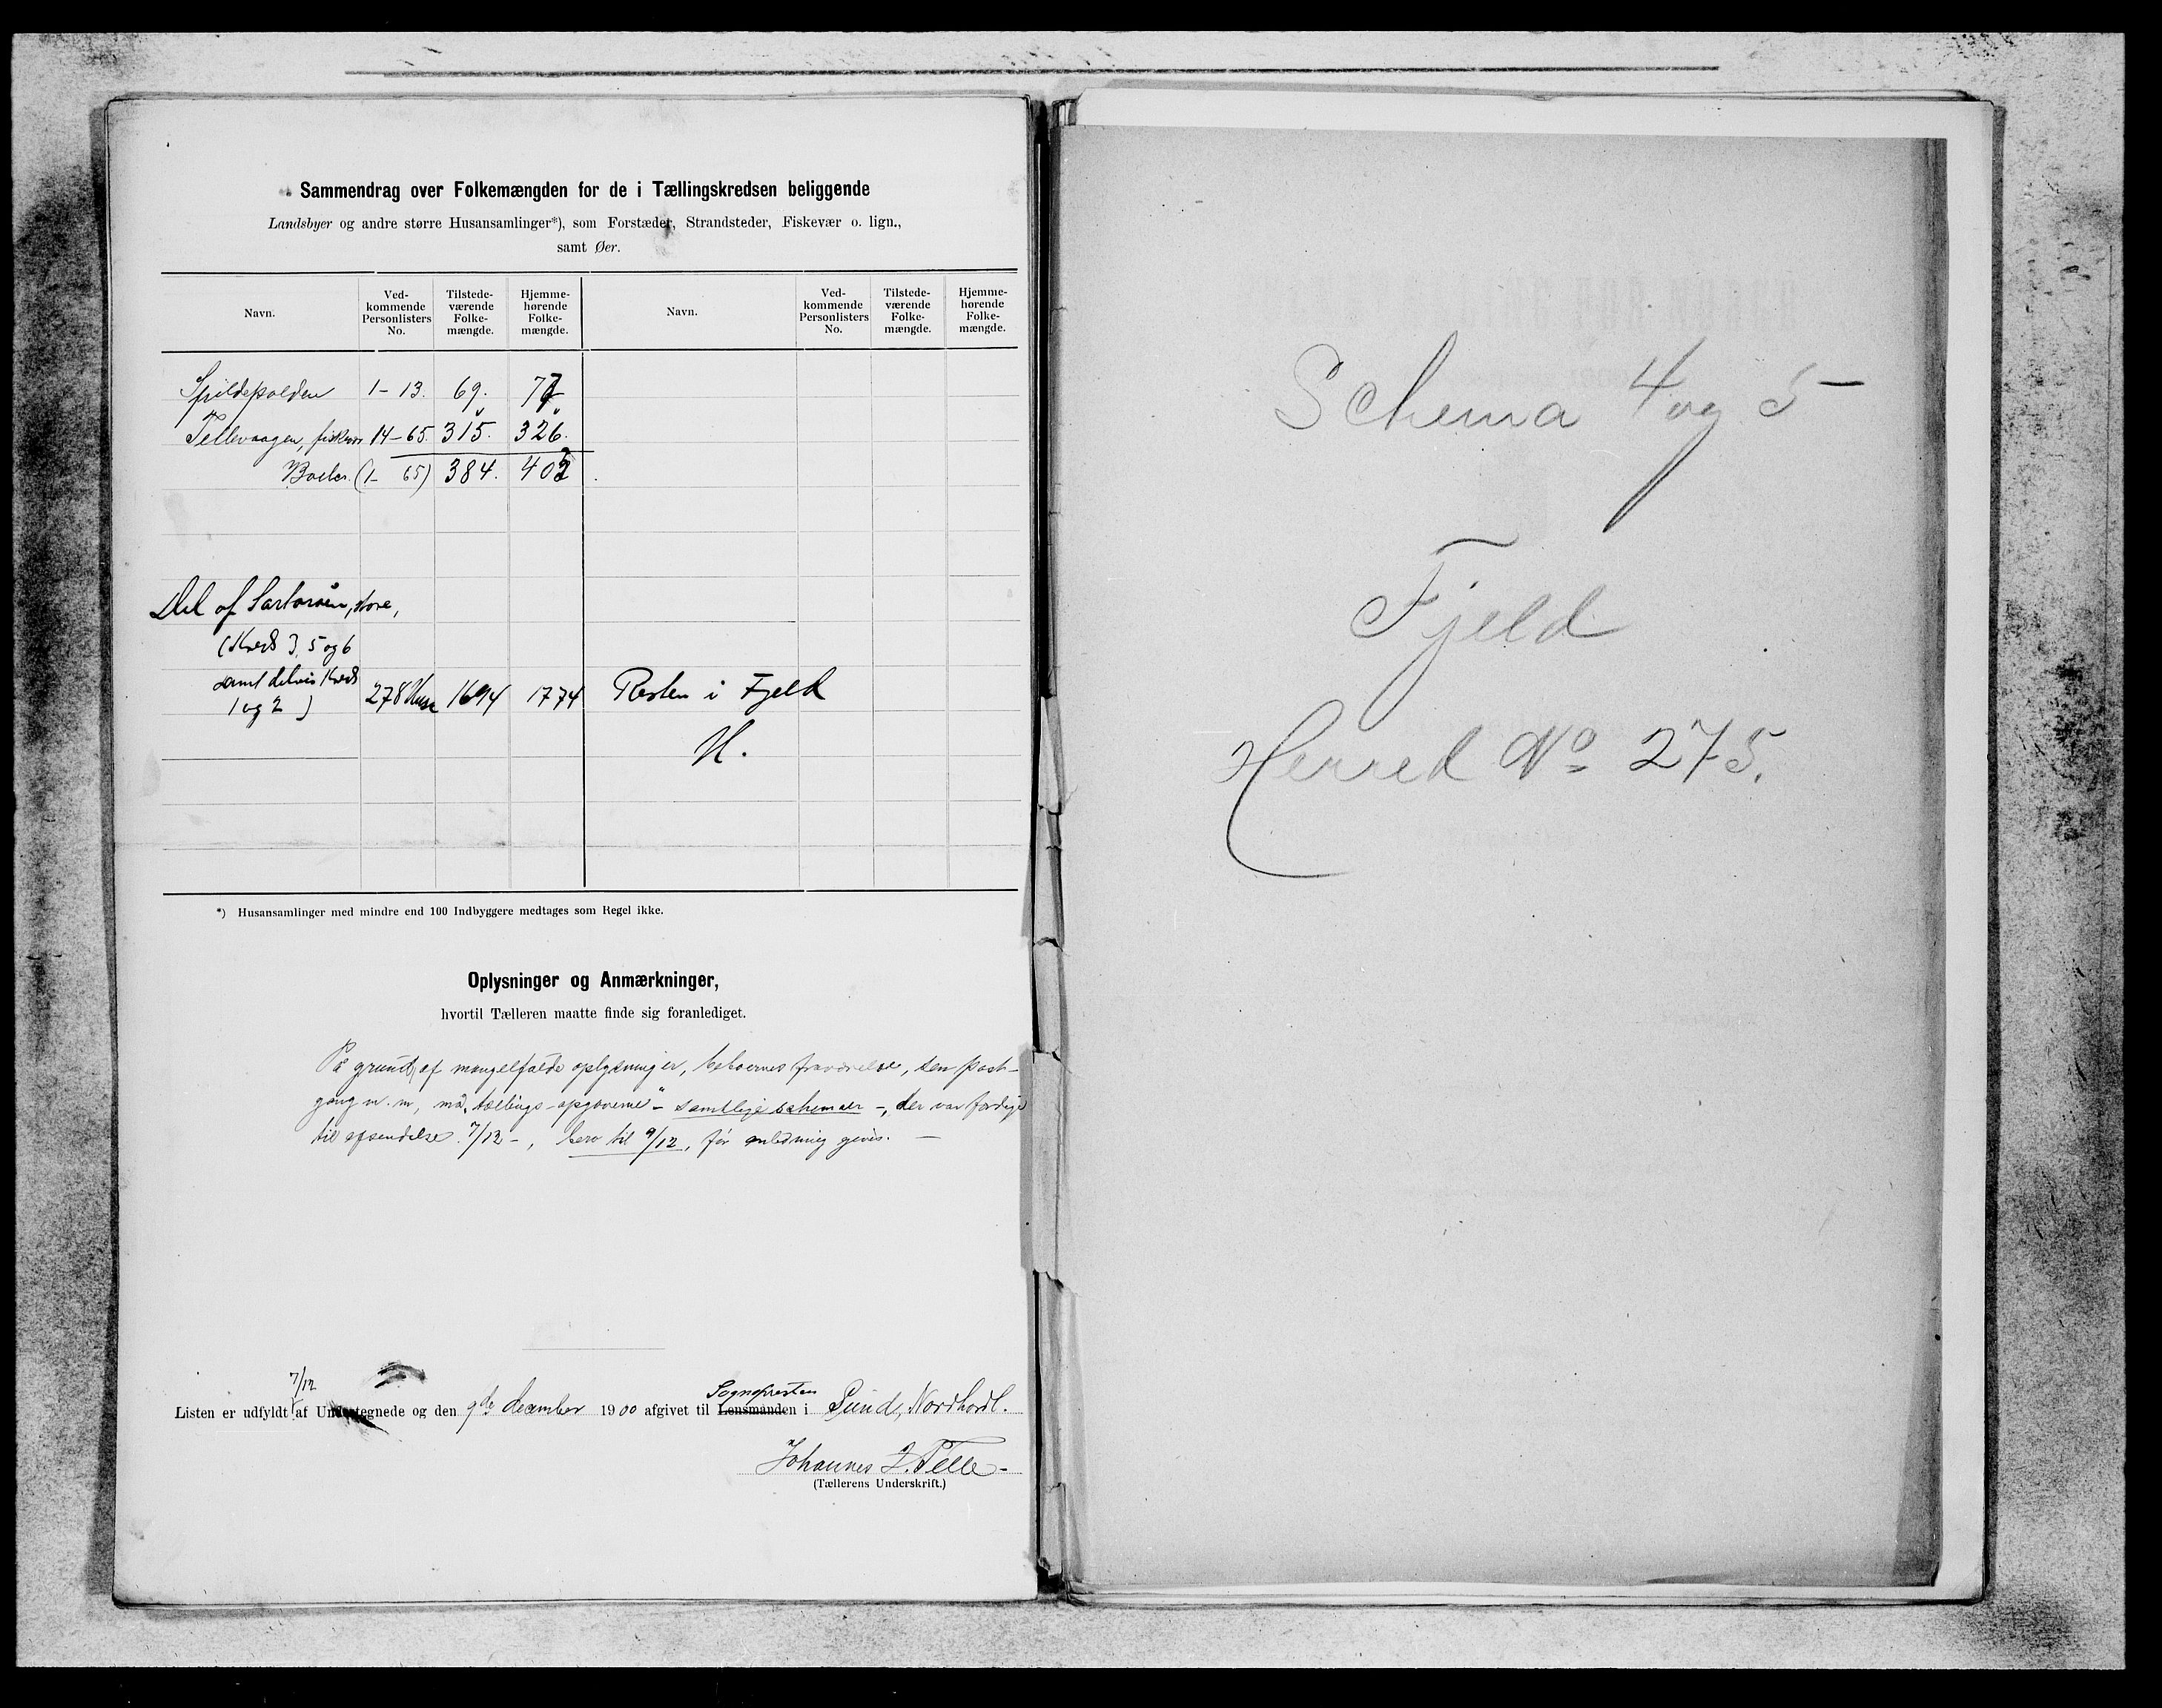 Sammendrag over Folkemængden for de i Tællingskredsen beliggende
Landsbyer og andre større Husansamlinger*), som Forstæder, Strandsteder, Fiskevær o. lign.,
samt Øer.
Navn. Ved-kommende Personlisters No. Tilstede-værende Folke-mængde. Hjemme-hørende Folke-mængde. Navn. Ved-kommende Personlisters No. Tilstede-værende Folke-mængde. Hjemme-hørende Folke-mængde.
Spildepolden 1-13. 69. 77
Tellevaagen, 14-65. 315. 326.
(1- 65) 384. 403
Del af Sartorøen, store,
(Kreds 3, 5 og 6
samt delvis Kreds
1 og 2) 278 Huse 1694 1774 Resten i Fjeld
H.
*) Husansamlinger med mindre end 100 Indbyggere medtages som Regel ikke.
Oplysninger og Anmærkninger,
hvortil Tælleren maatte finde sig foranlediget.
På grund af mangelfulde oplysninger, beboernes fraværelse, sen post-
gang m. m, må "tællings-opgaverne" - samtlige schemaer -, der var færdige
til afsendelse 7/12 -, bero til 9/12, før anledning gives. —
7/12
Sognepresten
Listen er udfyldt af Undertegnede og den 9de december 1900 afgivet til Lensmanden i Sund, Nordhordl.
Johannes J. Telle-
(Tællerens Underskrift.)
Schema 4 og 5
Fjeld
Herred No 275.